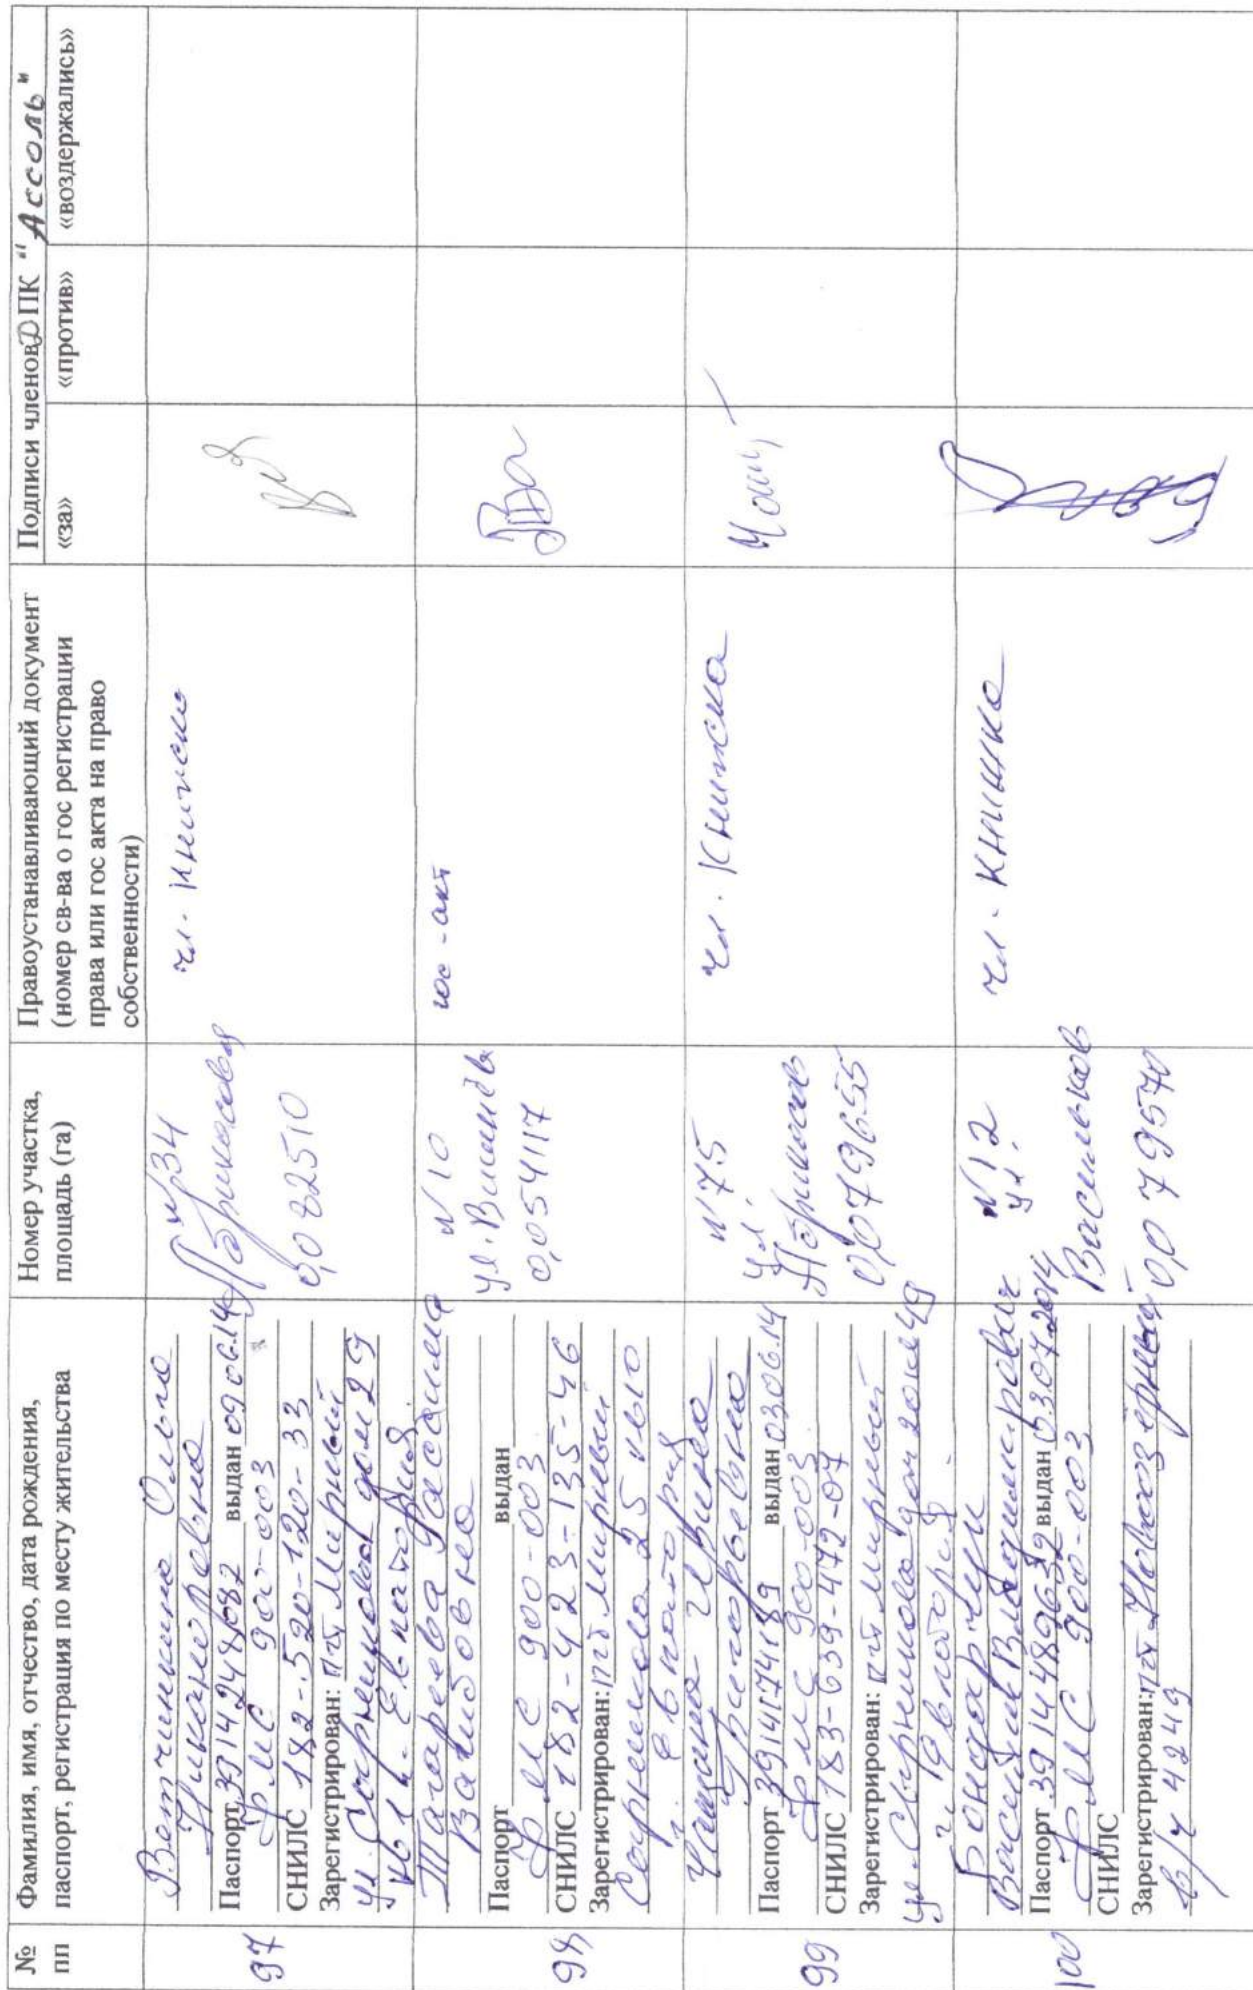 № пп
Фамилия, имя, отчество, дата рождения, паспорт, регистрация по месту жительства
Номер участка, площадь (га)
Правоустанавливающий документ (номер св-ва о гос регистрации права или гос акта на право собственности)
Подписи членов ДПК "Ассоль"
«за»
«против»
«воздержались»
97
Ветчинкина Ольга
Никаноровна
Паспорт 3914 248082 выдан 09 06.14
ФМС 900-003
СНИЛС 182-520-120-33
Зарегистрирован: пгт Мирный
ул. Сырникова дом 29
г. Евпатория
№34
Абрикосовая
0,082510
чл. книжка
98
Тагареева
Вагибовна
Паспорт выдан
ФМС 900-003
СНИЛС 182-423-135-46
Зарегистрирован: пгт Мирный
г. Евпатория
№10
ул. Вишнёвая
0,054117
гос-акт
99
Чащина Ирина
Григорьевна
Паспорт 3914174189 выдан 03.06.14
ФМС 900-003
СНИЛС 183-639-472-07
Зарегистрирован: пгт Мирный
г. Евпатория
№75
ул.
Абрикосов
0,079655
чл. Книжка
100
Бондарчук
Василий Владимирович
Паспорт 3914 489632 выдан 03.07.2014
ФМС 900-003
СНИЛС
Зарегистрирован: пгт Новоозёрный
в/ч 4249
№12
ул.
Васильков
0,079570
чл. книжка